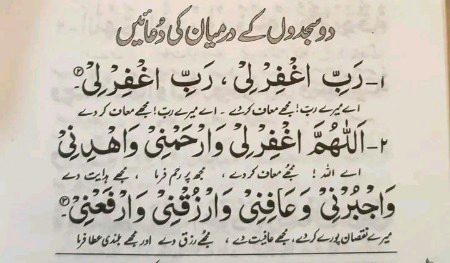 دو سجدوں کے درمیان کی دُعائیں
۱۔ رَبِّ اغْفِرْ لِیْ، رَبِّ اغْفِرْ لِیْ۔
اے میرے رب! مجھے معاف کر دے۔ اے میرے رب! مجھے معاف کر دے
۲۔ اَللّٰهُمَّ اغْفِرْ لِیْ وَارْحَمْنِیْ وَاهْدِنِیْ
اے اللہ! مجھے معاف کر دے، مجھ پر رحم فرما، مجھے ہدایت دے
وَاجْبُرْنِیْ وَعَافِنِیْ وَارْزُقْنِیْ وَارْفَعْنِیْ۔
میرے نقصان پورے کر دے، مجھے عافیت دے، مجھے رزق دے اور مجھے بلندی عطا فرما